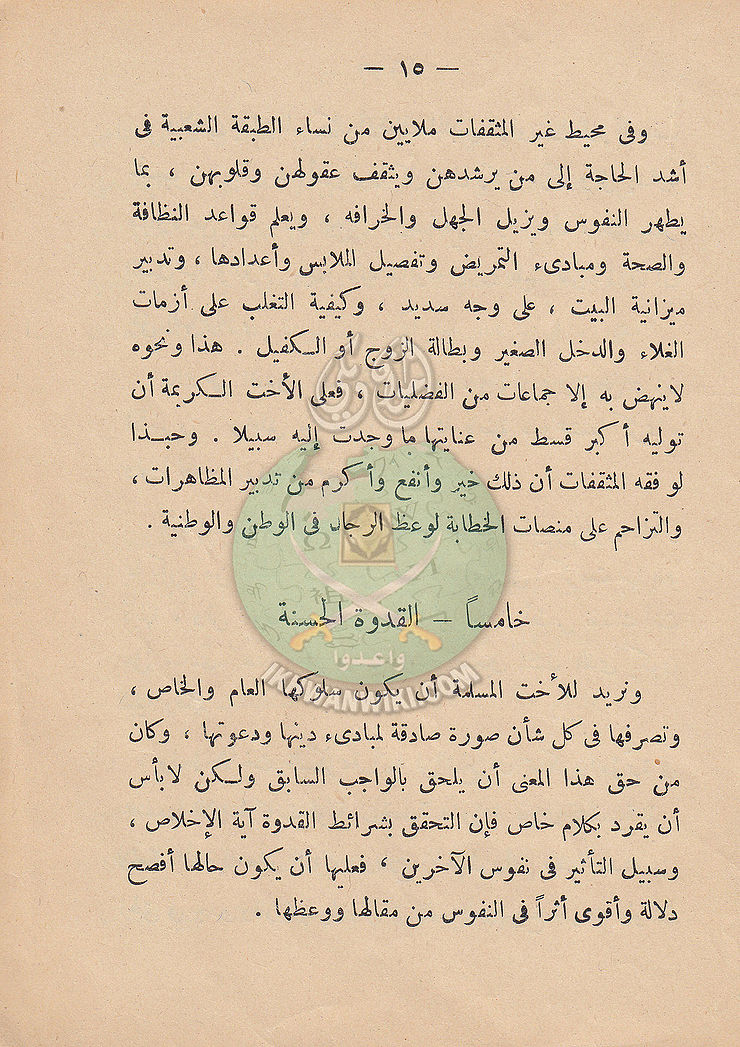 — ١٥ —
وفى محيط غير المثقفات ملايين من نساء الطبقة الشعبية فى
أشد الحاجة إلى من يرشدهن ويثقف عقولهن وقلوبهن ، بما
يطهر النفوس ويزيل الجهل والخرافه ، ويعلم قواعد النظافة
والصحة ومبادىء التمريض وتفصيل الملابس وأعدادها ، وتدبير
ميزانية البيت ، على وجه سديد ، وكيفية التغلب على أزمات
الغلاء والدخل الصغير وبطالة الزوج أو الكفيل . هذا ونحوه
لا ينهض به إلا جماعات من الفضليات ، فعلى الأخت الكريمة أن
توليه أكبر قسط من عنايتها ما وجدت إليه سبيلا . وحبذا
لو فقه المثقفات أن ذلك خير وأنفع وأكرم من تدبير المظاهرات ،
والتزاحم على منصات الخطابة لوعظ الرجال فى الوطن والوطنية .
خامساً — القدوة الحسنة
ونريد للأخت المسلمة أن يكون سلوكها العام والخاص ،
وتصرفها فى كل شأن صورة صادقة لمبادىء دينها ودعوتها ، وكان
من حق هذا المعنى أن يلحق بالواجب السابق ولكن لا بأس
أن يقرد بكلام خاص فإن التحقق بشرائط القدوة آية الإخلاص ،
وسبيل التأثير فى نفوس الآخرين ، فعليها أن يكون حالها أفصح
دلالة وأقوى أثراً فى النفوس من مقالها ووعظها .
واعدوا
IKHWANWIKI.COM